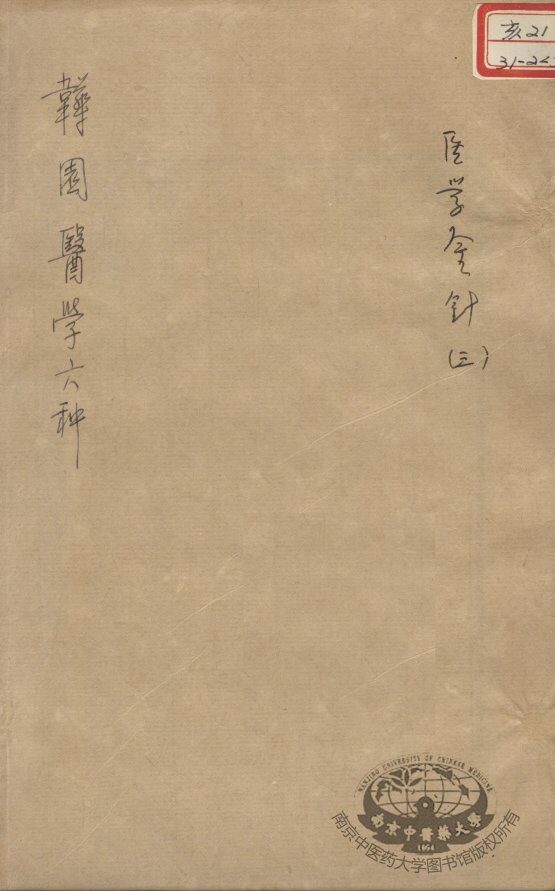 亥21
31-2<
医学金针
(三)
韡園醫學六种
NANJING UNIVERSITY OF CHINESE MEDICINE
南京中醫藥大學
1954
南京中医药大学图书馆版权所有